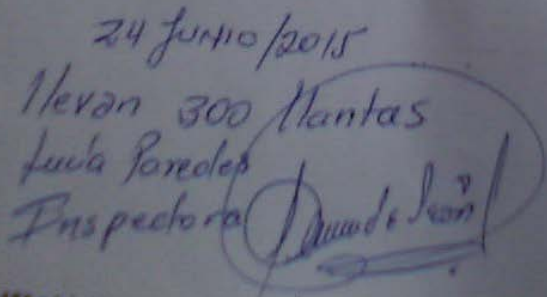 24 Junio/2015
llevan 300 llantas
Lucia Paredes
Inspectora